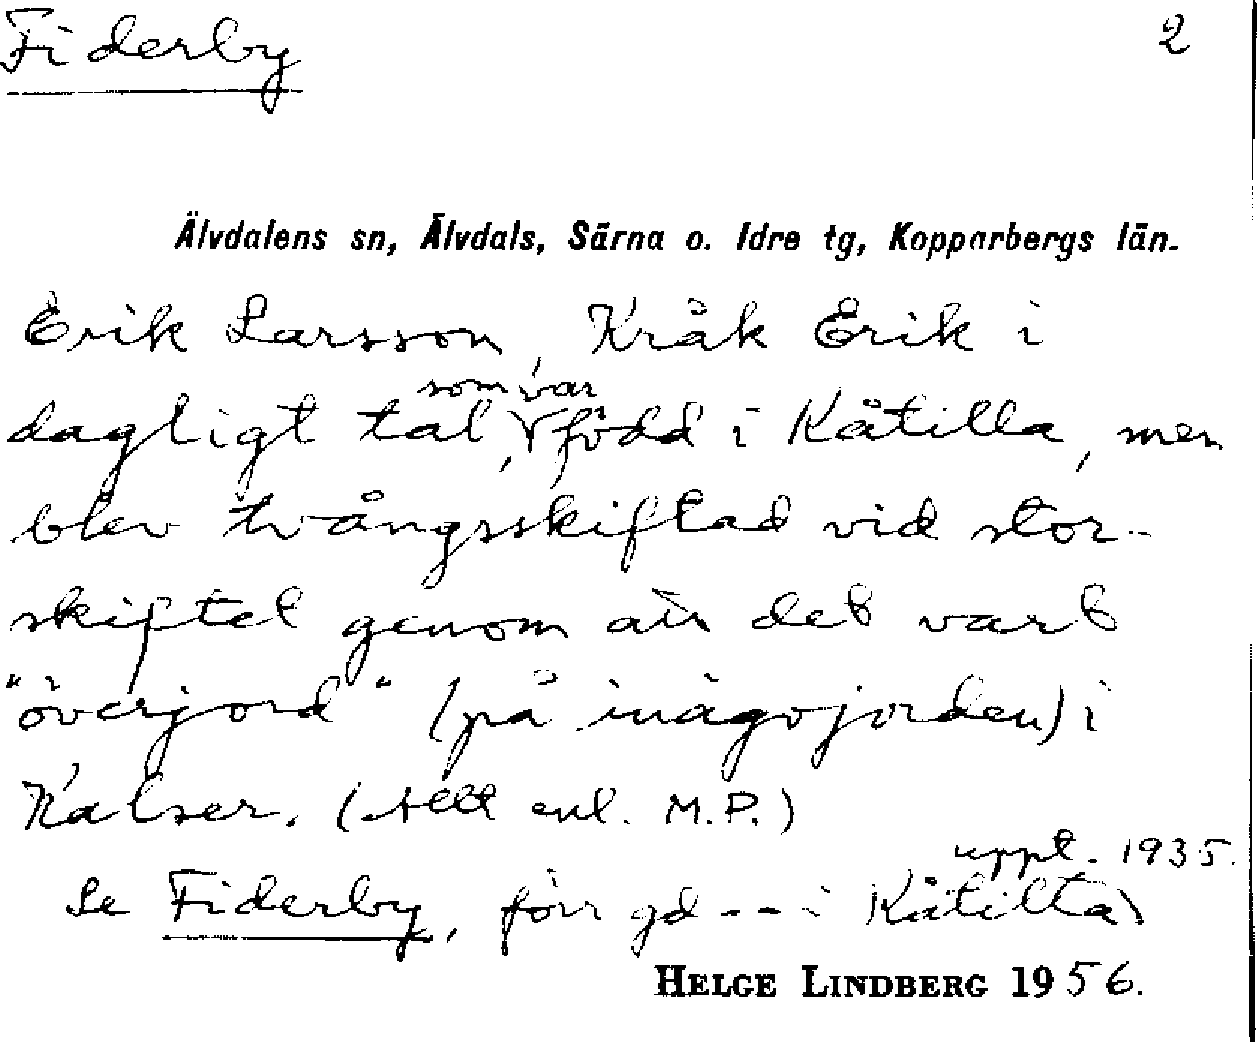 Fiderby 2
Älvdalens sn, Älvdals, Särna o. Idre tg, Kopparbergs län.
Erik Larsson, Kråk Erik i
dagligt tal, som var född i Kåtilla, men
blev tvångsskiftad vid stor-
skiftet genom att det vart
"överjord" (på inägojorden) i
Kalser. (Allt enl. M.P.)
uppt. 1935.
Se Fiderby, förr gd -- i Kåtilla)
HELGE LINDBERG 1956.